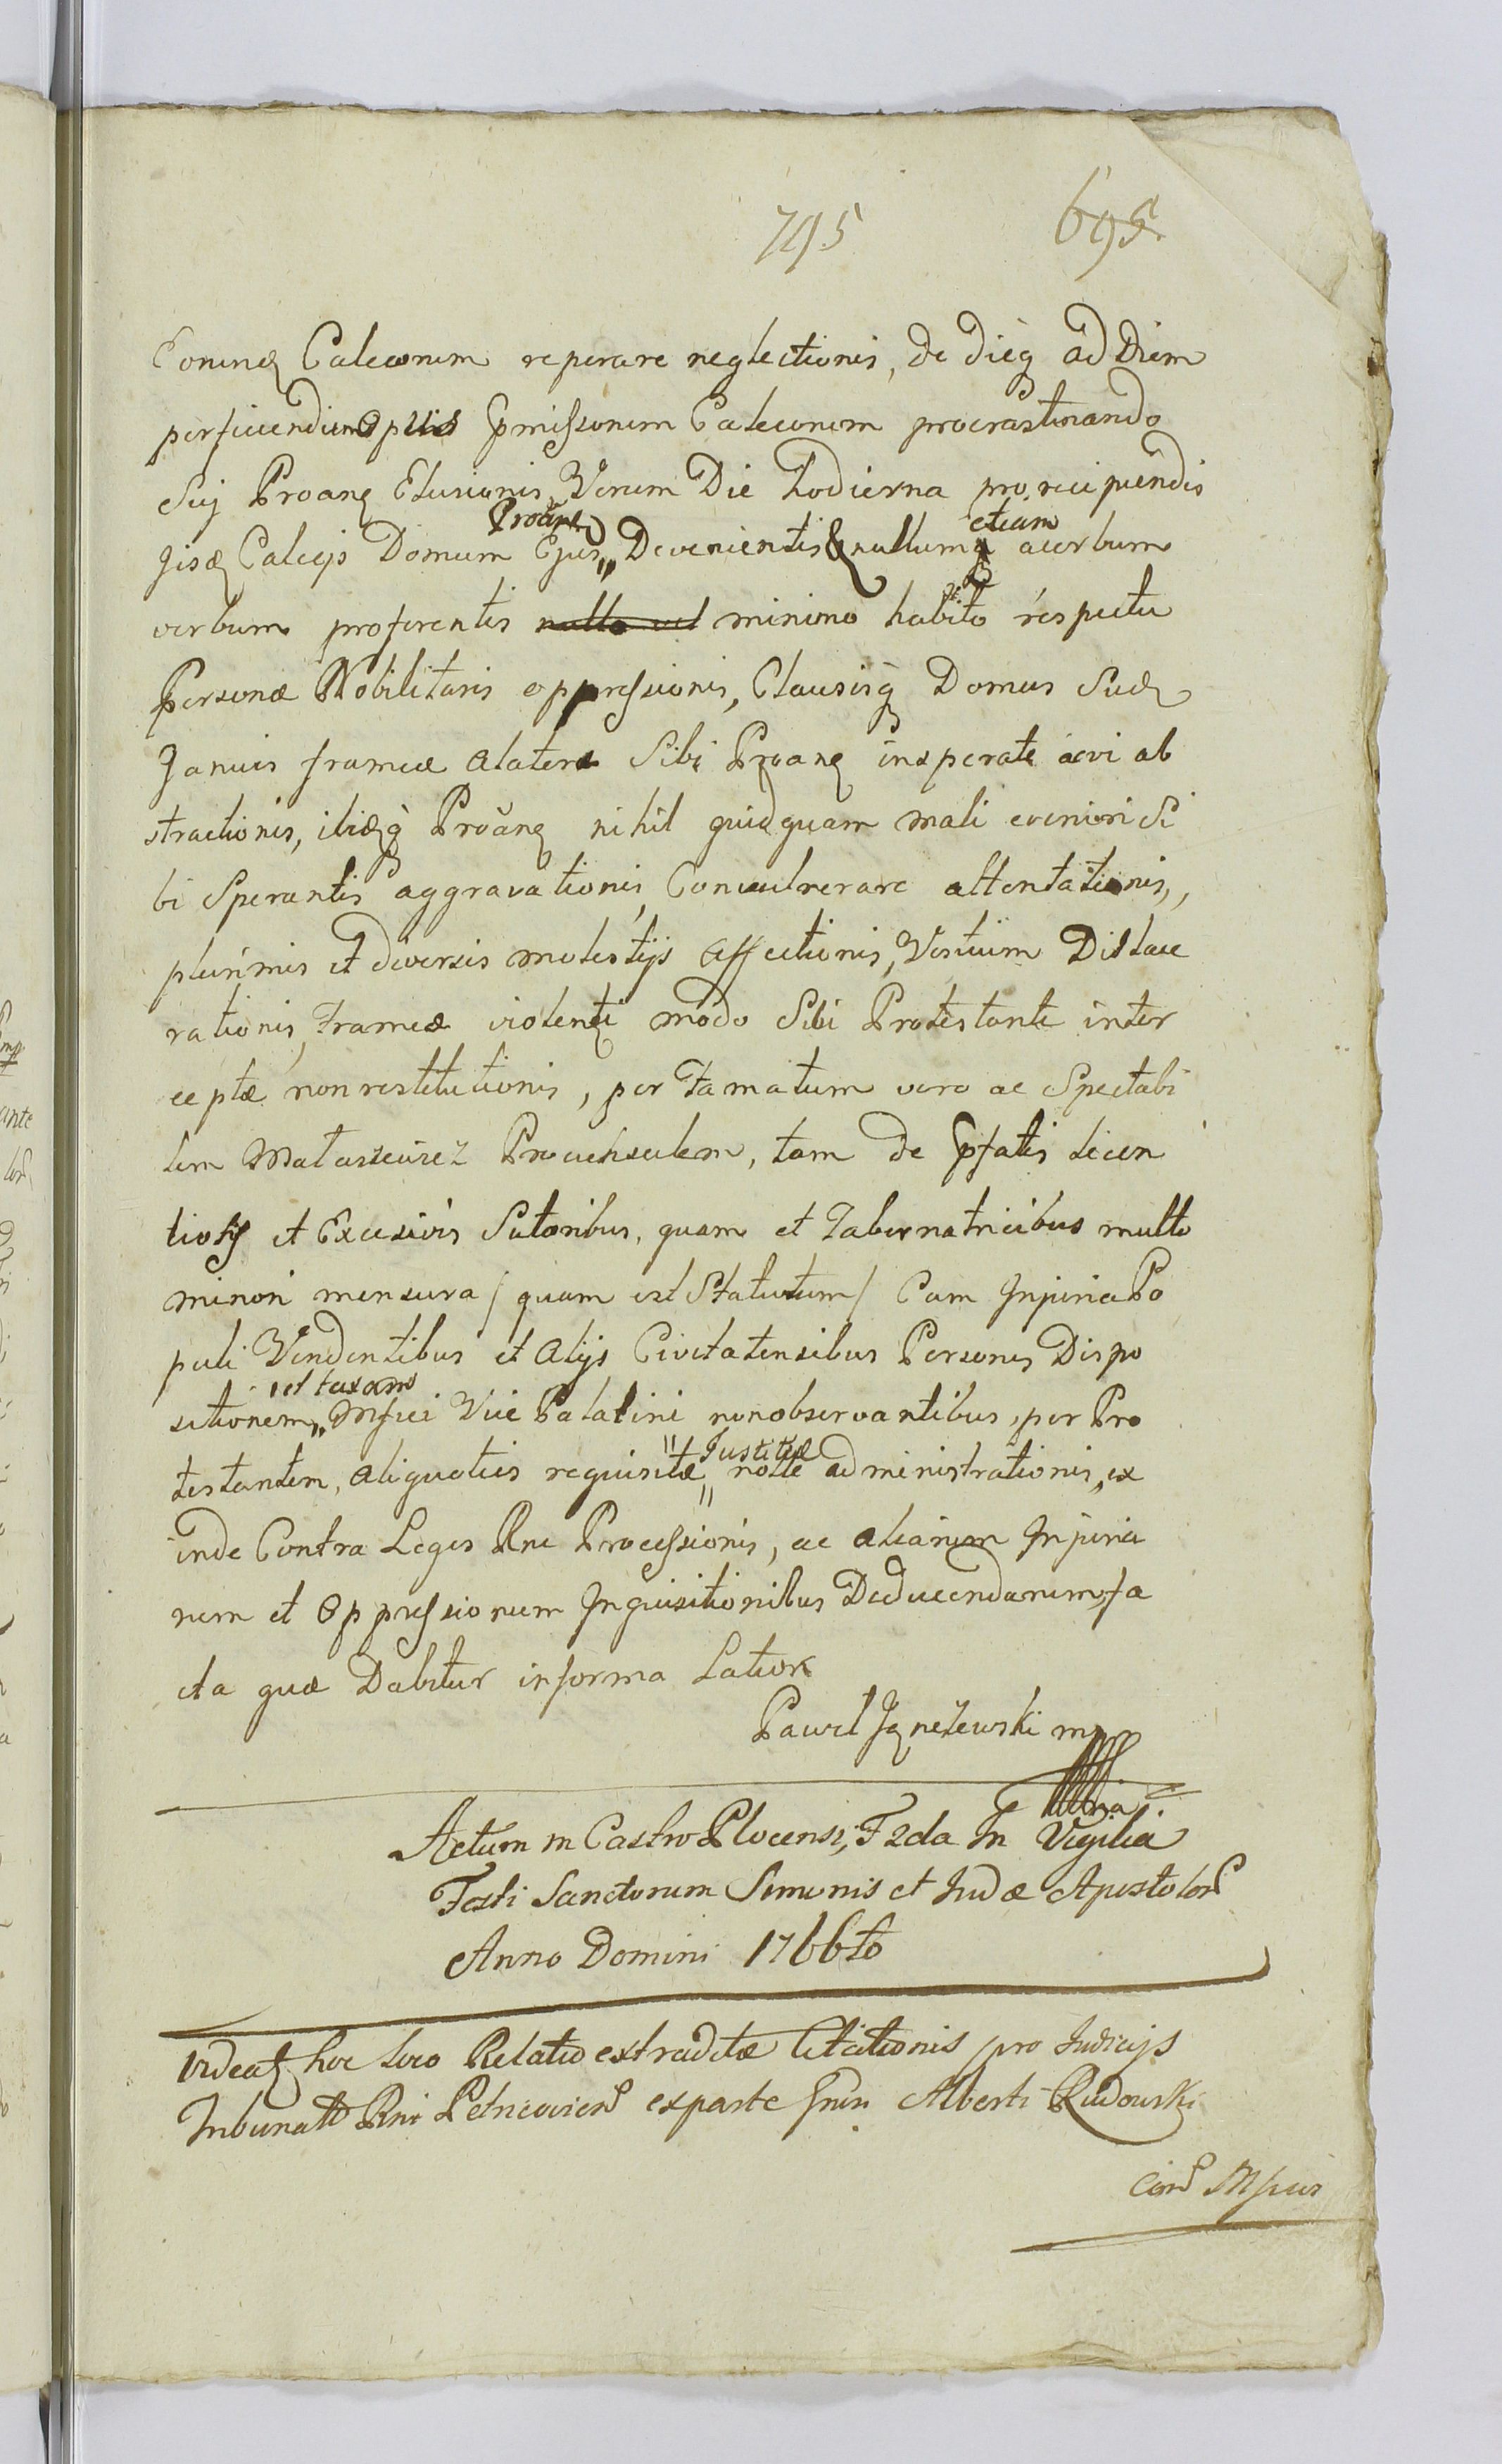 795 695
Calceorum reperare neglectionis, de dieq ad Diem
perficiendum opus pmissorum Calceorum procrastinando
Sui Proan Elusionis, Verum Die hodierna pro recipiendis
Protane etiam
Calcejs Domum Ejus, Devenientis & nullumq acerbum
verbum proferentis nullo vel minimo habito respectu
Personæ Nobilitaris oppressionis, Clausisq Domus Suæ
Januis frameæ a latere Sibi Proan insperate ab
stractionis, Proan nihil quidquam mali Si
bi Sperantis aggravationis, Convulnerare attentationis,
plurimis et diversis molestijs Affectionis, Vestium Dilace
rationis, Frameæ violenti modo Sibi Protestante inter
ceptæ non restitutionis, per Famatum vero ac Spectabi
lem Proconsulem, tam de pfatis licen
tiosis et Excesivis Sutoribus, quam et Tabernatricibus multo
minori mensura / quam est Statutum / Cum Injuria Po
puli Vendentibus et Alijs Civitatensibus Personis Dispo
vel taxam
sitionem Mfici Vice Palatini non observantibus, per Pro
Justitiæ
testantem, aliquoties requisitæ nolle administrationis, ex
inde Contra Leges Rni Processionis, ac aliarum Injuria
rum et Oppressionum Inquisitionibus Deducendarum, fa
cta quæ Dabitur in forma Latiori
Paweł mp
Actum in Castro Plocensi, F 2da In Vigilia
Festi Sanctorum Simonis et Judæ Apostolor
Anno Domini 1766to
Videat hoc loco Relatio extraditæ Citationis pro Judicijs
Tribunatt Rni Petricovien ex parte Gnsi Alberti Rudowski
Con Mficis